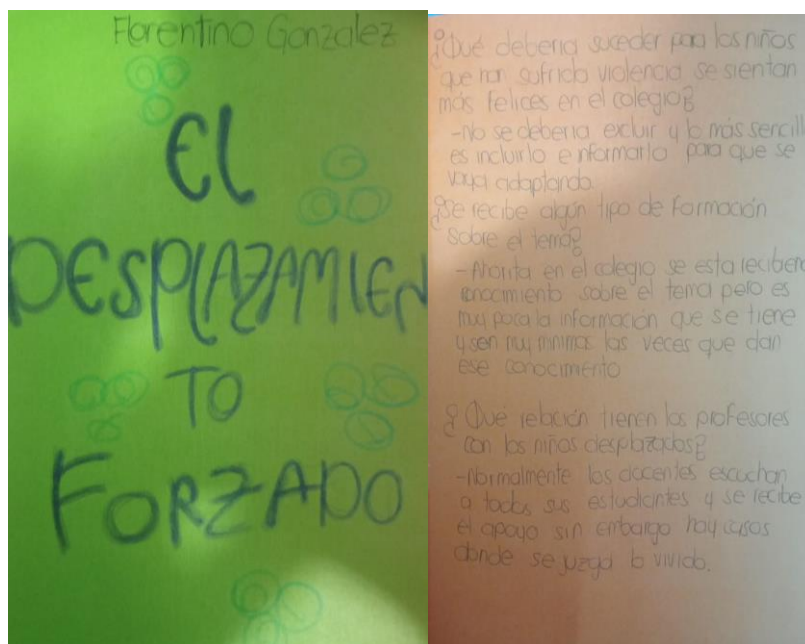 Florentino Gonzalez
El
DESPLAZAMIEN
TO
FORZADO
¿Qué deberia suceder para los niños
que han sufrido violencia se sientan
más felices en el colegio?
-No se deberia excluir y lo más sencill
es incluirlo e informarlo para que se
vaya adaptando.
¿Se recibe algún tipo de formación
sobre el tema?
-Ahorita en el colegio se esta recibien
conocimiento sobre el tema pero es
muy poca la información que se tiene
y sen muy minimas las veces que dan
ese conocimento
¿Qué relación tienen los profesores
con los niños desplazados?
-Normalmente los docentes escuchan
a todos sus estudiantes y se recibe
el apoyo sin embargo hay casos
donde se juzga lo vivido.